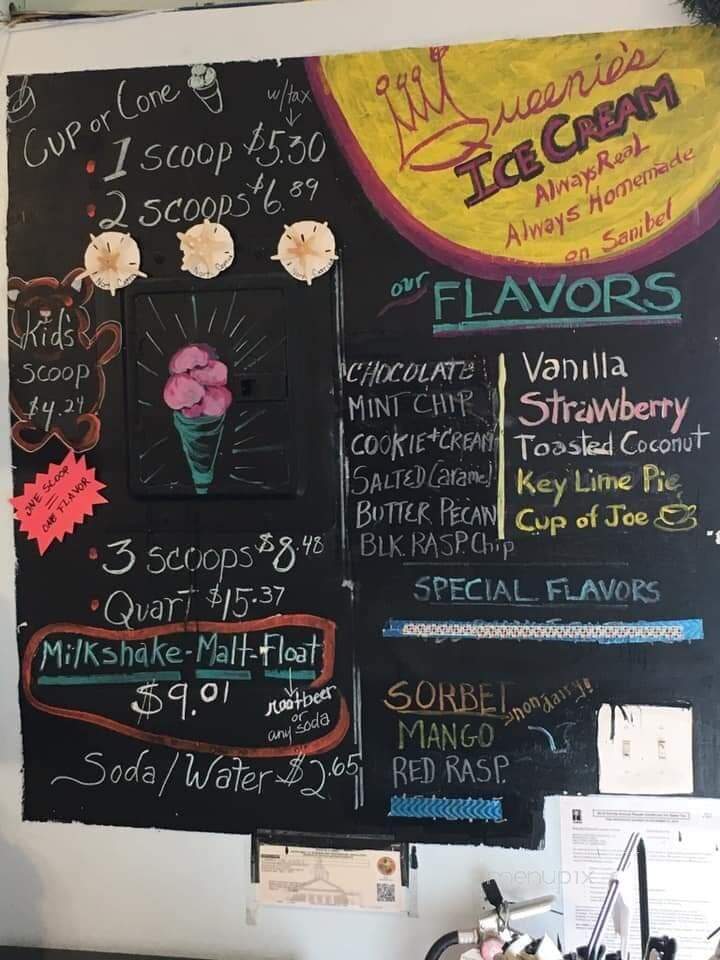 Cup or Cone
w/tax
1 SCOOP $5.30
2 SCOOPS $6.89
Kid's
SCOOP
$4.24
ONE SCOOP
=
ONE FLAVOR
3 SCOOPS $8.48
Quart $15.37
Milkshake-Malt-Float
$9.01
rootbeer
or
any soda
Soda/Water $2.65
Queenie's
ICE CREAM
Always Real
Always Homemade
on Sanibel
our FLAVORS
CHOCOLATE
MINT CHIP
COOKIE+CREAM
SALTED Caramel
BUTTER PECAN
BLK. RASP. Chip
Vanilla
Strawberry
Toasted Coconut
Key Lime Pie
Cup of Joe
SPECIAL FLAVORS
SORBET
non dairy!
MANGO
RED RASP.
menupix